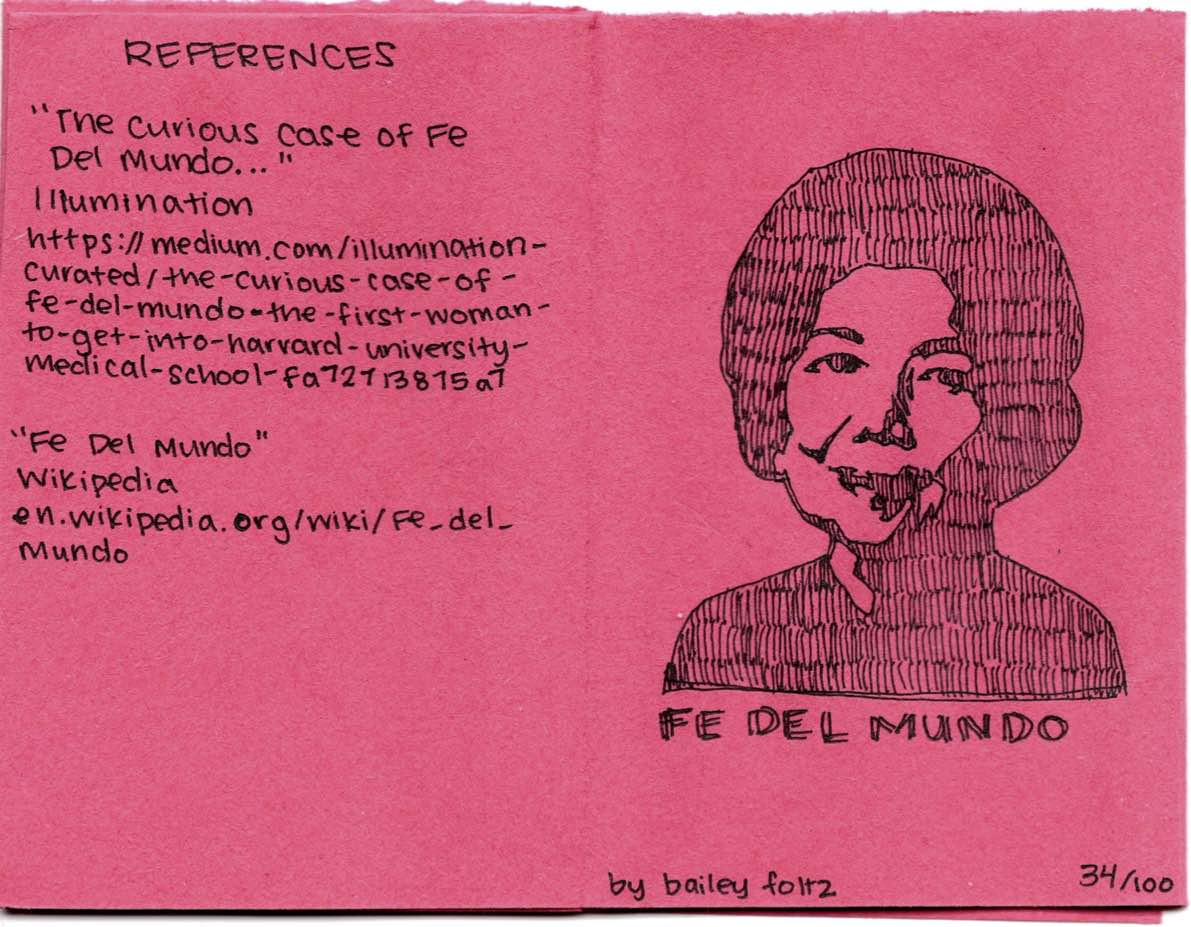 REFERENCES
"The Curious Case of Fe
Del Mundo..."
Illumination
https://medium.com/illumination-
curated/the-curious-case-of-
fe-del-mundo-the-first-woman-
to-get-into-harvard-university-
medical-school-fa72713875a7
"Fe Del Mundo"
Wikipedia
en.wikipedia.org/wiki/Fe_del_
Mundo
FE DEL MUNDO
by bailey foltz
34/100